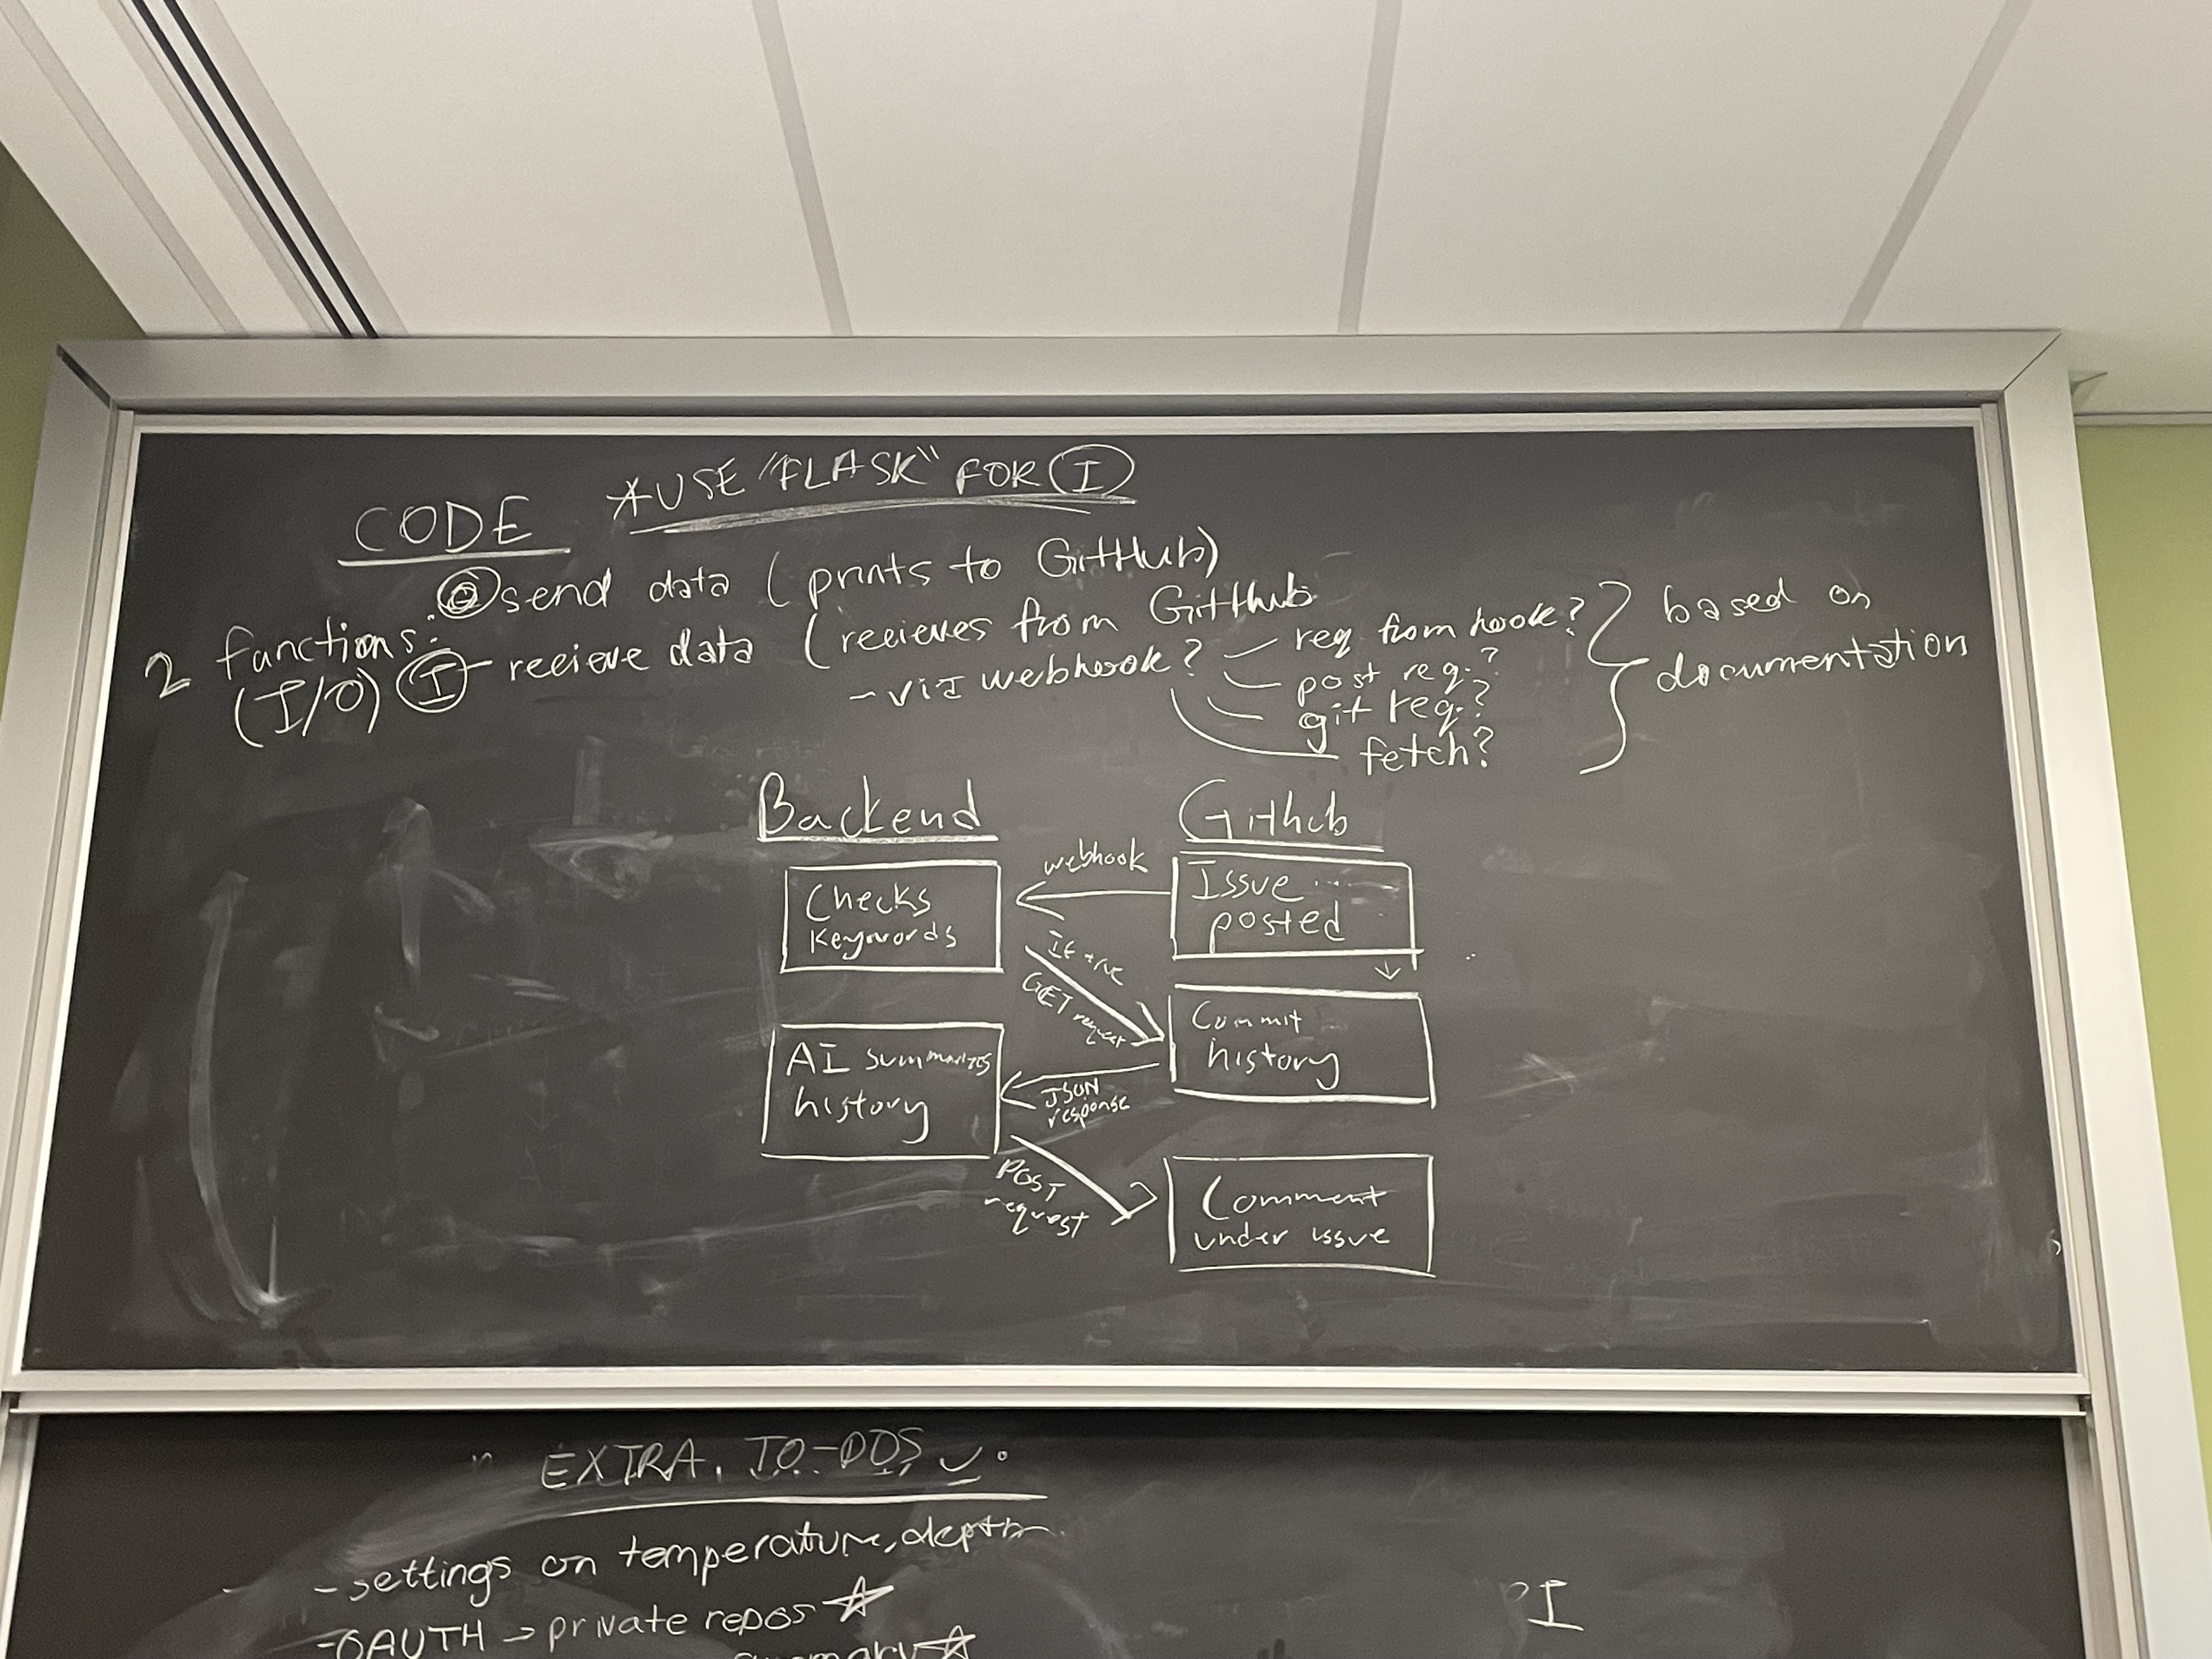 CODE
*USE "FLASK" FOR I
2 functions:
(I/O)
O send data (prints to GitHub)
I - recieve data (recieves from GitHub
- via webhook?
req from hook?
post req.?
git req.?
fetch?
based on
documentation
Backend
Github
Checks
Keywords
webhook
Issue
posted
If true
GET request
Commit
history
AI summarizes
history
JSON
response
POST
request
Comment
under issue
EXTRA TO-DOS
- settings on temperature, depth
- OAUTH → private repos ☆
summary ☆